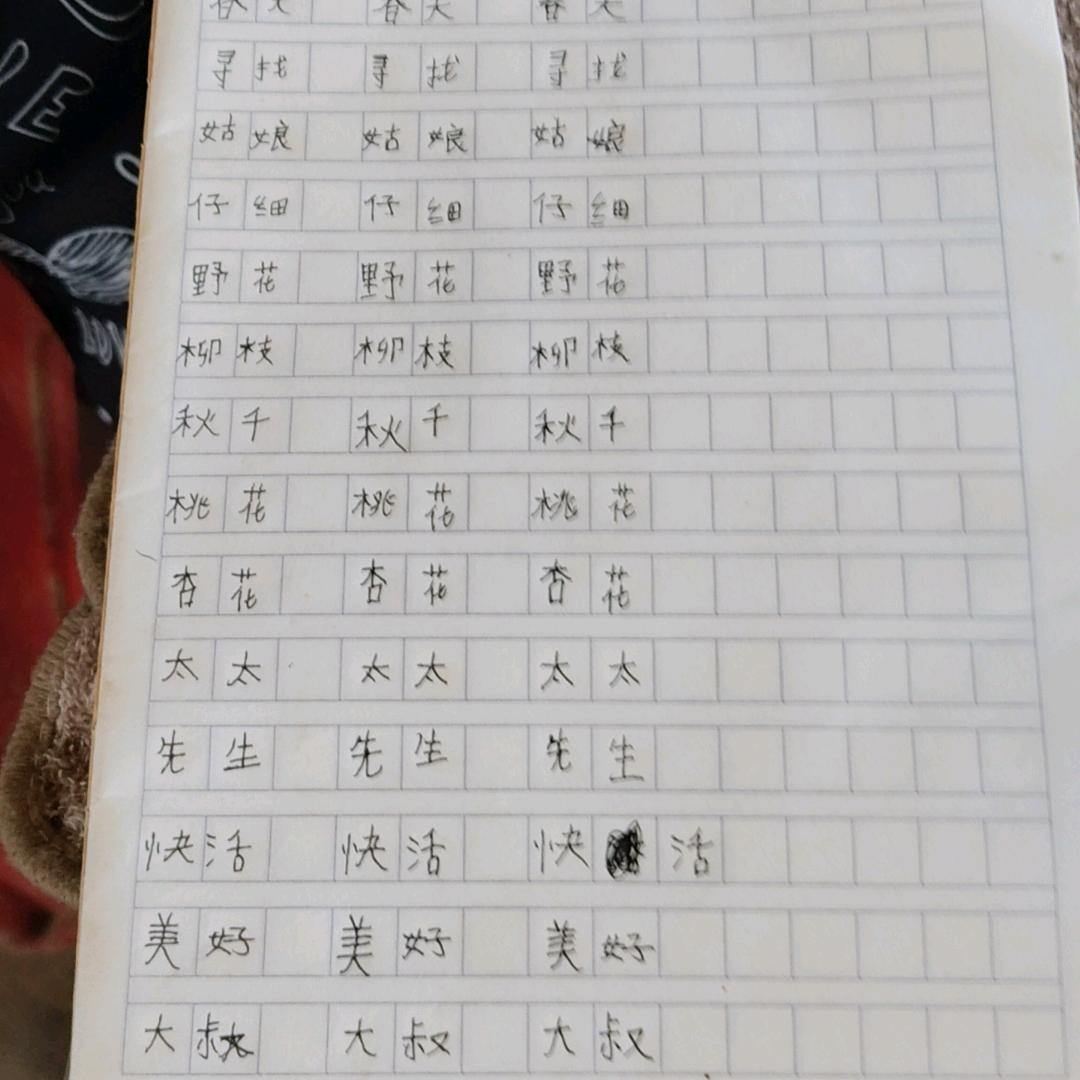 春天 春天 春天
寻找 寻找 寻找
姑娘 姑娘 姑娘
仔细 仔细 仔细
野花 野花 野花
柳枝 柳枝 柳枝
秋千 秋千 秋千
桃花 桃花 桃花
杏花 杏花 杏花
太太 太太 太太
先生 先生 先生
快活 快活 快 活
美好 美好 美好
大叔 大叔 大叔